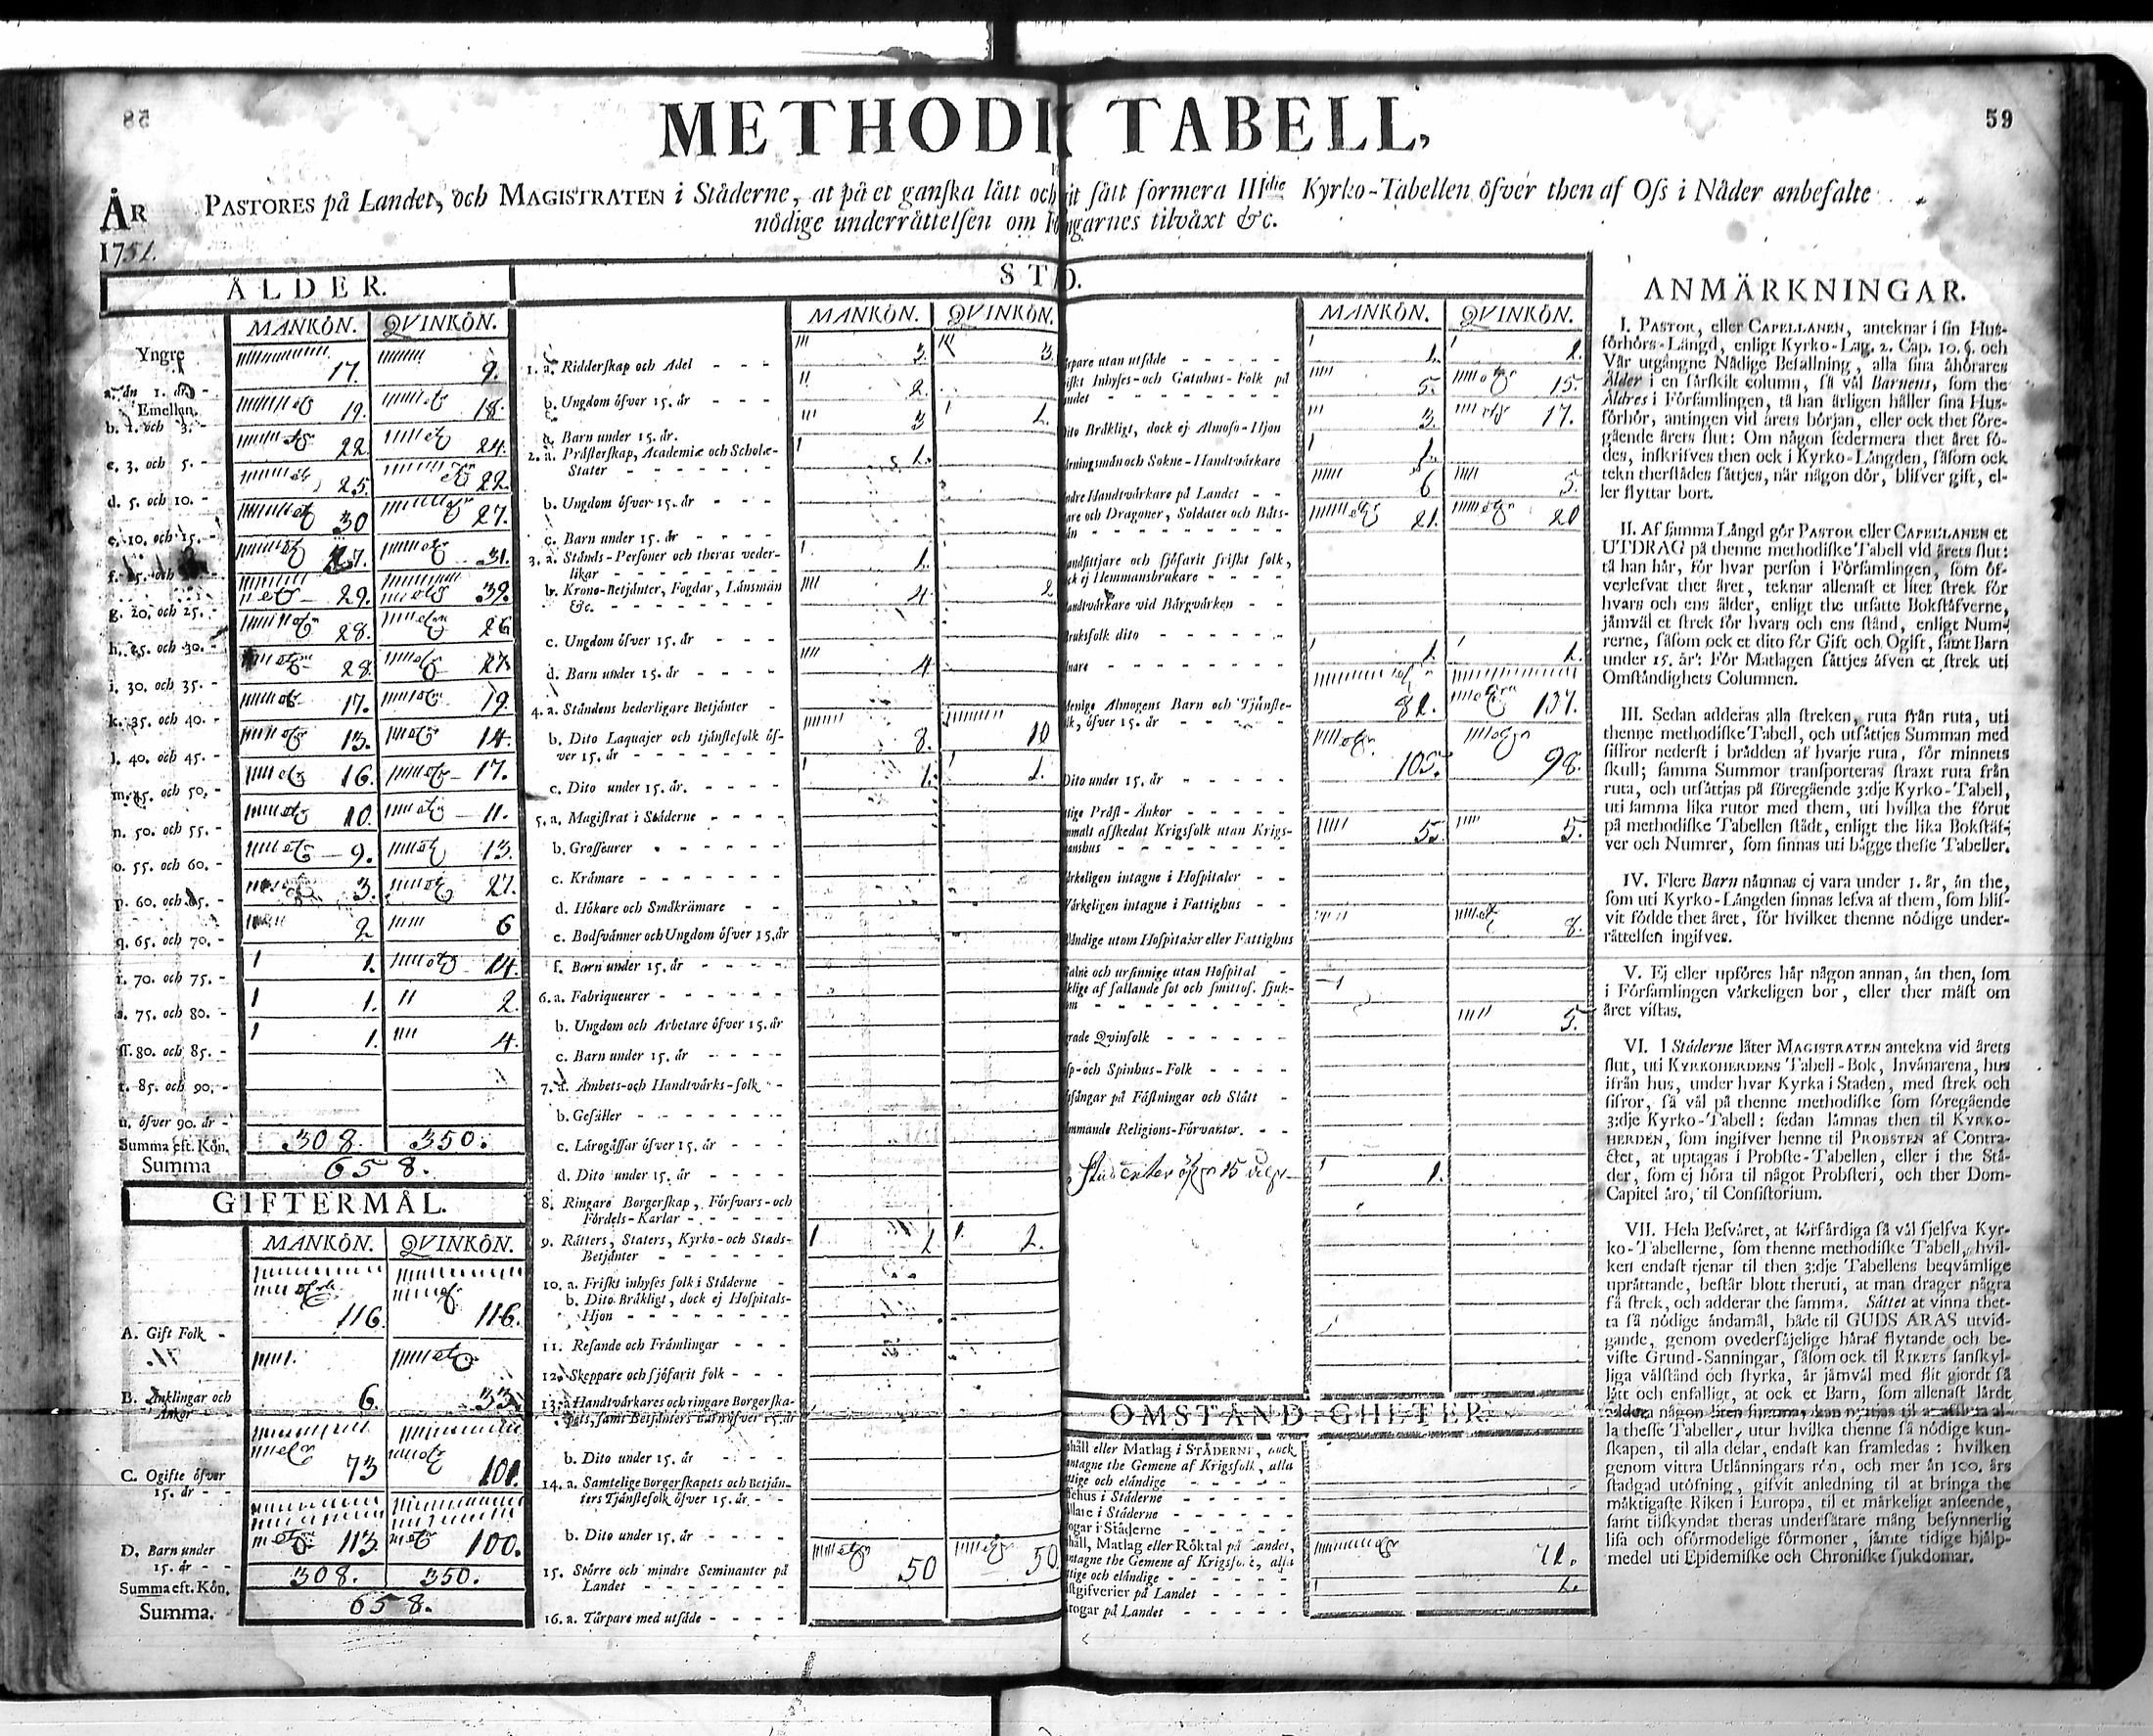 58
59
METHODI TABELL,
ÅR
1751.
PASTORES på Landet, och MAGISTRATEN i Städerne, at på et ganska lätt och sätt formera IIIdie Kyrko-Tabellen öfver then af Oss i Nåder anbefalte
nödige underrättelsen om garnes tilväxt &c.
ÅLDER.
MANKÖN. QVINKÖN.
Yngre
a. än 1. år - 17. 9.
Emellan.
b. 1. och 3. - 19. 18.
c. 3. och 5. - 22. 24.
d. 5. och 10. - 25. 22.
e. 10. och 15. - 30 27.
27. 31.
g. 20. och 25. - 29. 39.
h. 25. och 30. - 28. 26
i. 30. och 35. - 28. 27.
k. 35. och 40. - 17. 19.
l. 40. och 45. - 13. 14.
m. 45. och 50. - 16. 17.
n. 50. och 55. - 10. 11.
o. 55. och 60. - 9. 13.
p. 60. och 65. - 3. 27.
q. 65. och 70. - 2 6
r. 70. och 75. - 1. 14.
s. 75. och 80. - 1. 2.
ss. 80. och 85. - 1. 4.
t. 85. och 90. -
u. öfver 90. år -
Summa est. Kön. 308. 350.
Summa 658.
GIFTERMÅL.
MANKÖN. QVINKÖN.
A. Gift Folk - 116. 116.
B. Änklingar och
Änkor - 6. 33.
C. Ogifte öfver
15. år - - 73 101.
D. Barn under
15. år - - 113. 100.
Summa est. Kön. 308. 350.
Summa. 658.
STÅ
MANKÖN. QVINKÖN.
1. a. Ridderskap och Adel - - - 3. 3.
b. Ungdom öfver 15. år - - - 2.
c. Barn under 15. år. 3 1.
2. a. Prästerskap, Academiæ och Scholæ-
Stater - - - - - - 1.
b. Ungdom öfver 15. år - - -
c. Barn under 15. år - - - -
3. a. Stånds-Personer och theras veder-
likar - - - - - - - 1.
b. Krono-Betjänter, Fogdar, Länsmän
&c. - - - - - - - - 4. 2
c. Ungdom öfver 15. år - - -
d. Barn under 15. år - - - - 4.
4. a. Ståndens hederligare Betjänter -
b. Dito Laquajer och tjänstefolk öf-
ver 15. år - - - - - - - 8. 10
c. Dito under 15. år. - - - - 1. 1.
5. a. Magistrat i Städerne - - - -
b. Grosseurer - - - - - - -
c. Krämare - - - - - - -
d. Hökare och Småkrämare - -
e. Bodsvänner och Ungdom öfver 15. år
f. Barn under 15. år - - - -
6. a. Fabriqueurer - - - - - -
b. Ungdom och Arbetare öfver 15. år
c. Barn under 15. år - - - -
7. a. Ämbets-och Handtvärks-folk - -
b. Gesäller - - - - - - -
c. Lärogåssar öfver 15. år - - -
d. Dito under 15. år - - - -
8. Ringare Borgerskap, Försvars-och
Fördels-Karlar - - - - - -
9. Rätters, Staters, Kyrko-och Stads-
Betjänter - - - - - - 1 1.
10. a. Friskt inhyses folk i Städerne -
b. Dito Bräkligt, dock ej Hospitals-
Hjon - - - - - - - -
11. Resande och Främlingar - - -
12. Skeppare och sjöfarit folk - - -
13. a. Handtvärkares och ringare Borgerska-
pets, samt Betjänters Barn öfver 15. år
b. Dito under 15. år - - - -
14. a. Samtelige Borgerskapets och Betjän-
ters Tjänstefolk öfver 15. år - -
b. Dito under 15. år - - - -
15. Större och mindre Seminanter på
Landet - - - - - - - 50 50
16. a. Tärpare med utsäde - - - -
D.
MANKÖN. QVINKÖN.
rpare utan utsäde - - - - - 1. 1.
iskt Inhyses-och Gatuhus-Folk på
ndet - - - - - - - - 5. 15.
ito Bräkligt, dock ej Almoso-Hjon 3. 17.
rningsmän och Sokne-Handtvärkare 1.
ndre Handtvärkare på Landet - - 6 5.
are och Dragoner, Soldater och Båts-
än - - - - - - - - 21. 20
andsittare och sjöfarit friskt folk,
ck ej Hemmansbrukare - - - -
andtvärkare vid Bärgvärken - -
ruksfolk dito - - - - - -
nare - - - - - - - - 1. 1.
enige Almogens Barn och Tjänste-
lk, öfver 15. år - - - - - 81. 137.
Dito under 15. år - - - - - 105. 98.
tige Präst-Änkor - - - -
mmalt afskedat Krigsfolk utan Krigs-
manshus - - - - - - - 5. 5.
ärkeligen intagne i Hospitaler - -
Värkeligen intagne i Fattighus - -
ländige utom Hospitaler eller Fattighus 8.
Galne och ursinnige utan Hospital -
klige af fallande sot och smittos. sjuk-
om - - - - - - - - -
rade Qvinfolk - - - - - - 5.
sp-och Spinhus-Folk - - - -
sfångar på Fästningar och Slått -
mmande Religions-Förvantor. - -
Studenter öfver 15 1.
OMSTÄNDIGHETER.
shåll eller Matlag i STÄDERNE, dock
ntagne the Gemene af Krigsfolk, alla
ttige och eländige - - - - -
ehus i Städerne - - - - -
llare i Städerne - - - - -
rogar i Städerne - - - - -
håll, Matlag eller Röktal på Landet,
ntagne the Gemene af Krigsfolk, alla
ttige och eländige - - - - - 71.
stgifverier på Landet - - - - 1.
rogar på Landet - - - - -
ANMÄRKNINGAR.
I. PASTOR, eller CAPELLANEN, anteknar i sin Hus-
förhörs-Längd, enligt Kyrko-Lag. 2. Cap. 10. §. och
Vår utgångne Nådige Befallning, alla sina åhörares
Ålder i en särskilt column, så väl Barnens, som the
Äldres i Församlingen, tå han årligen håller sina Hus-
förhör, antingen vid årets början, eller ock thet före-
gående årets slut: Om någon sedermera thet året fö-
des, inskrifves then ock i Kyrko-Längden, såsom ock
tekn therstädes sättjes, när någon dör, blifver gift, el-
ler flyttar bort.
II. Af samma Längd gör PASTOR eller CAPELLANEN et
UTDRAG på thenne methodiske Tabell vid årets slut:
tå han här, för hvar person i Församlingen, som öf-
verlefvat thet året, teknar allenast et litet strek för
hvars och ens ålder, enligt the utsatte Bokstäfverne,
jämväl et strek för hvars och ens stånd, enligt Num-
rerne, såsom ock et dito för Gift och Ogift, samt Barn
under 15. år: För Matlagen sättjes äfven et strek uti
Omständighets Columnen.
III. Sedan adderas alla streken, ruta från ruta, uti
thenne methodiske Tabell, och utsättjes Summan med
siffror nederst i brädden af hvarje ruta, för minnets
skull; samma Summor transporteras straxt ruta från
ruta, och utsättjas på föregående 3:dje Kyrko-Tabell,
uti samma lika rutor med them, uti hvilka the förut
på methodiske Tabellen städt, enligt the lika Bokstäf-
ver och Numrer, som finnas uti bägge thesse Tabeller.
IV. Flere Barn nämnas ej vara under 1. år, än the,
som uti Kyrko-Längden finnas lefva af them, som blif-
vit födde thet året, för hvilket thenne nödige under-
rättelsen ingifves.
V. Ej eller upföres här någon annan, än then, som
i Församlingen värkeligen bor, eller ther mäst om
året vistas.
VI. I Städerne låter MAGISTRATEN antekna vid årets
slut, uti KYRKOHERDENS Tabell-Bok, Invånarena, hus
ifrån hus, under hvar Kyrka i Staden, med strek och
siffror, så väl på thenne methodiske som föregående
3:dje Kyrko-Tabell: sedan lämnas then til KYRKO-
HERDEN, som ingifver henne til PROBSTEN af Contra-
ctet, at uptagas i Probste-Tabellen, eller i the Stä-
der, som ej höra til något Probsteri, och ther Dom-
Capitel äro, til Consistorium.
VII. Hela Besväret, at förfärdiga så väl sjelfva Kyr-
ko-Tabellerne, som thenne methodiske Tabell, hvil-
ken endast tjenar til then 3:dje Tabellens beqvämlige
uprättande, består blott theruti, at man drager några
få strek, och adderar the samma. Sättet at vinna thet-
ta så nödige ändamål, både til GUDS ÄRAS utvid-
gande, genom ovedersäjelige häraf flytande och be-
viste Grund-Sanningar, såsom ock til RIKETS sanskyl-
liga välstånd och styrka, är jämväl med flit giordt så
lätt och enfalligt, at ock et Barn, som allenast lärdt
addera någon liten summa, kan nyttjas til at afsluta al-
la thesse Tabeller, utur hvilka thenne så nödige kun-
skapen, til alla delar, endast kan framledas: hvilken
genom vittra Utlänningars rön, och mer än 100. års
stadgad utöfning, gifvit anledning til at bringa the
mäktigaste Riken i Europa, til et märkeligt anseende,
samt tilskyndat theras undersåtare mång besynnerlig
lisa och oförmodelige förmoner, jämte tidige hjälp-
medel uti Epidemiske och Chroniske sjukdomar.